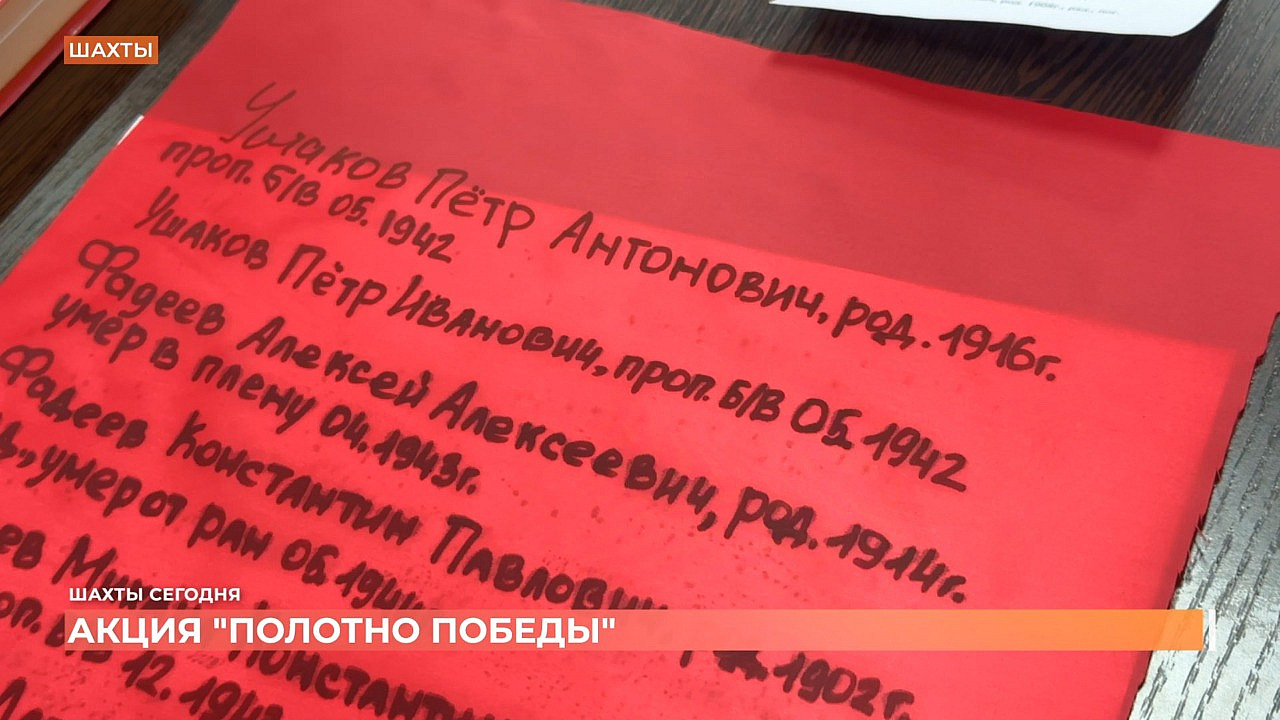 ШАХТЫ
Ушаков Пётр Антонович, род. 1916г.
проп. б/в 05. 1942
Ушаков Пётр Иванович, проп. б/в 05. 1942
Фадеев Алексей Алексеевич, род. 1914г.
умер в плену 04.1943г.
Фадеев Константин Павлович род. 1902г.
умер от ран 05. 194
12. 194
ШАХТЫ СЕГОДНЯ
АКЦИЯ "ПОЛОТНО ПОБЕДЫ"